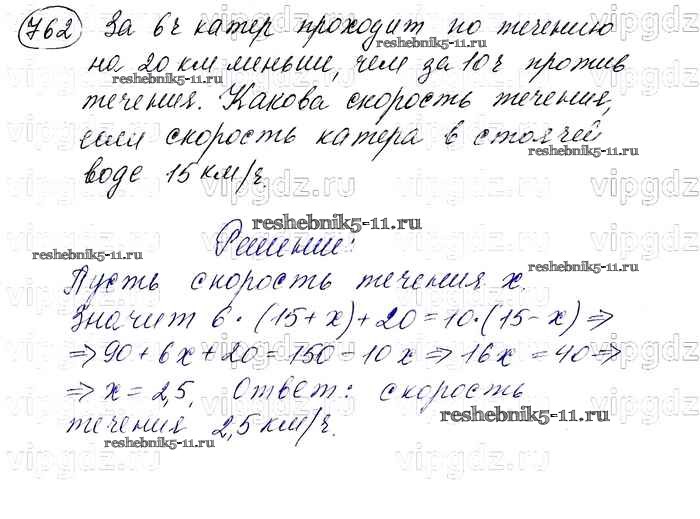 762 За 6ч катер проходит по течению
на 20 км меньше, чем за 10ч против
течения. Какова скорость течения,
если скорость катера в стоячей
воде 15 км/ч.
Решение:
Пусть скорость течения x.
Значит 6·(15+x)+20=10·(15-x) ⇒
⇒ 90+6x+20=150-10x ⇒ 16x=40 ⇒
⇒ x=2,5. Ответ: скорость
течения 2,5 км/ч.
reshebnik5-11.ru
reshebnik5-11.ru
reshebnik5-11.ru
reshebnik5-11.ru
reshebnik5-11.ru
reshebnik5-11.ru
reshebnik5-11.ru
reshebnik5-11.ru
vipgdz.ru